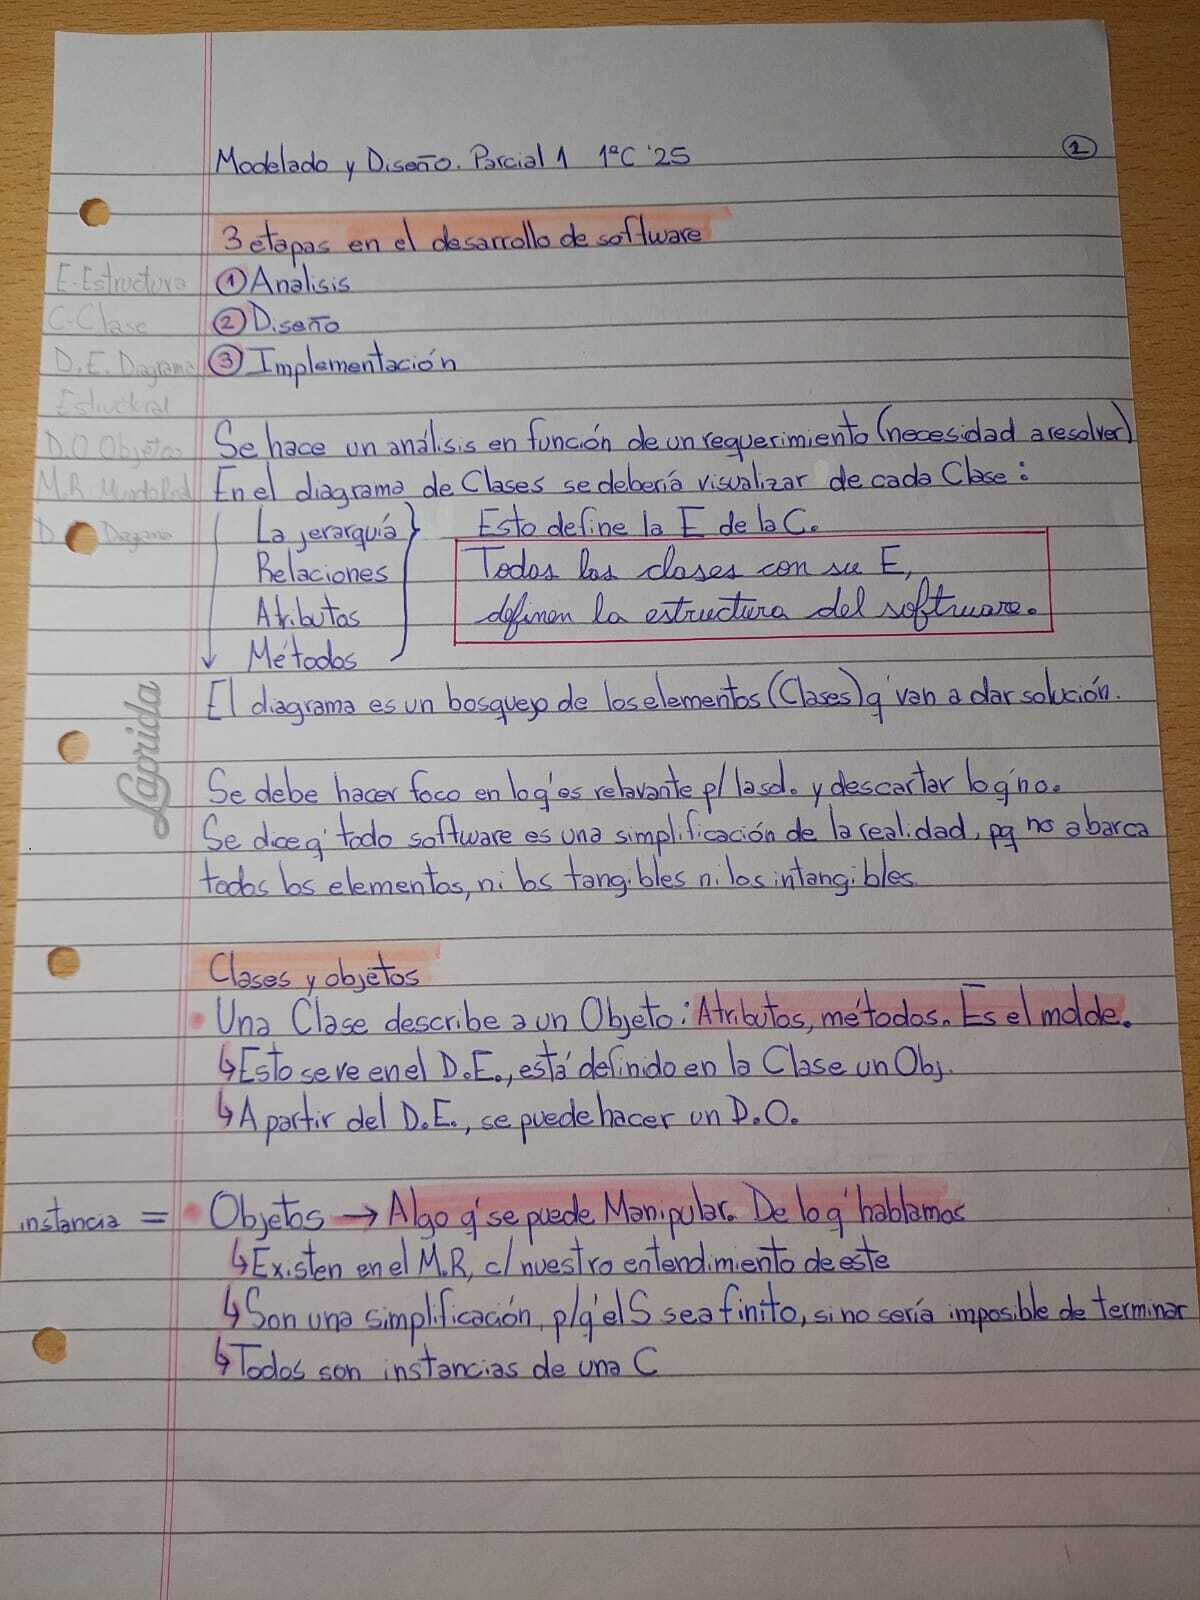 Modelado y Diseño. Parcial 1 1ºC '25
1
3 etapas en el desarrollo de software
E-Estructura
① Analisis
C-Clase
② Diseño
D.E. Diagrama
③ Implementación
Estructural
D.O Objetos
Se hace un análisis en función de un requerimiento (necesidad a resolver)
M.R Mundo Real
En el diagrama de Clases se debería visualizar de cada Clase:
D
La jerarquía
Esto define la E de la C.
Relaciones
Todas las clases con su E,
Atributos
definen la estructura del software.
Métodos
El diagrama es un bosquejo de los elementos (Clases) q' van a dar solución.
Laprida
Se debe hacer foco en lo q' es relavante p/ la sd. y descartar lo q' no.
Se dice q' todo software es una simplificación de la realidad, pq no abarca
todos los elementos, ni los tangibles ni los intangibles
Clases y objetos
• Una Clase describe a un Objeto: Atributos, métodos. Es el molde.
↳ Esto se ve en el D.E., está definido en la Clase un Obj.
↳ A partir del D.E., se puede hacer un D.O.
instancia = • Objetos → Algo q' se puede Manipular. De lo q' hablamos
↳ Existen en el M.R, c/ nuestro entendimiento de este
↳ Son una simplificación, p/q' el S sea finito, si no sería imposible de terminar
↳ Todos son instancias de una C